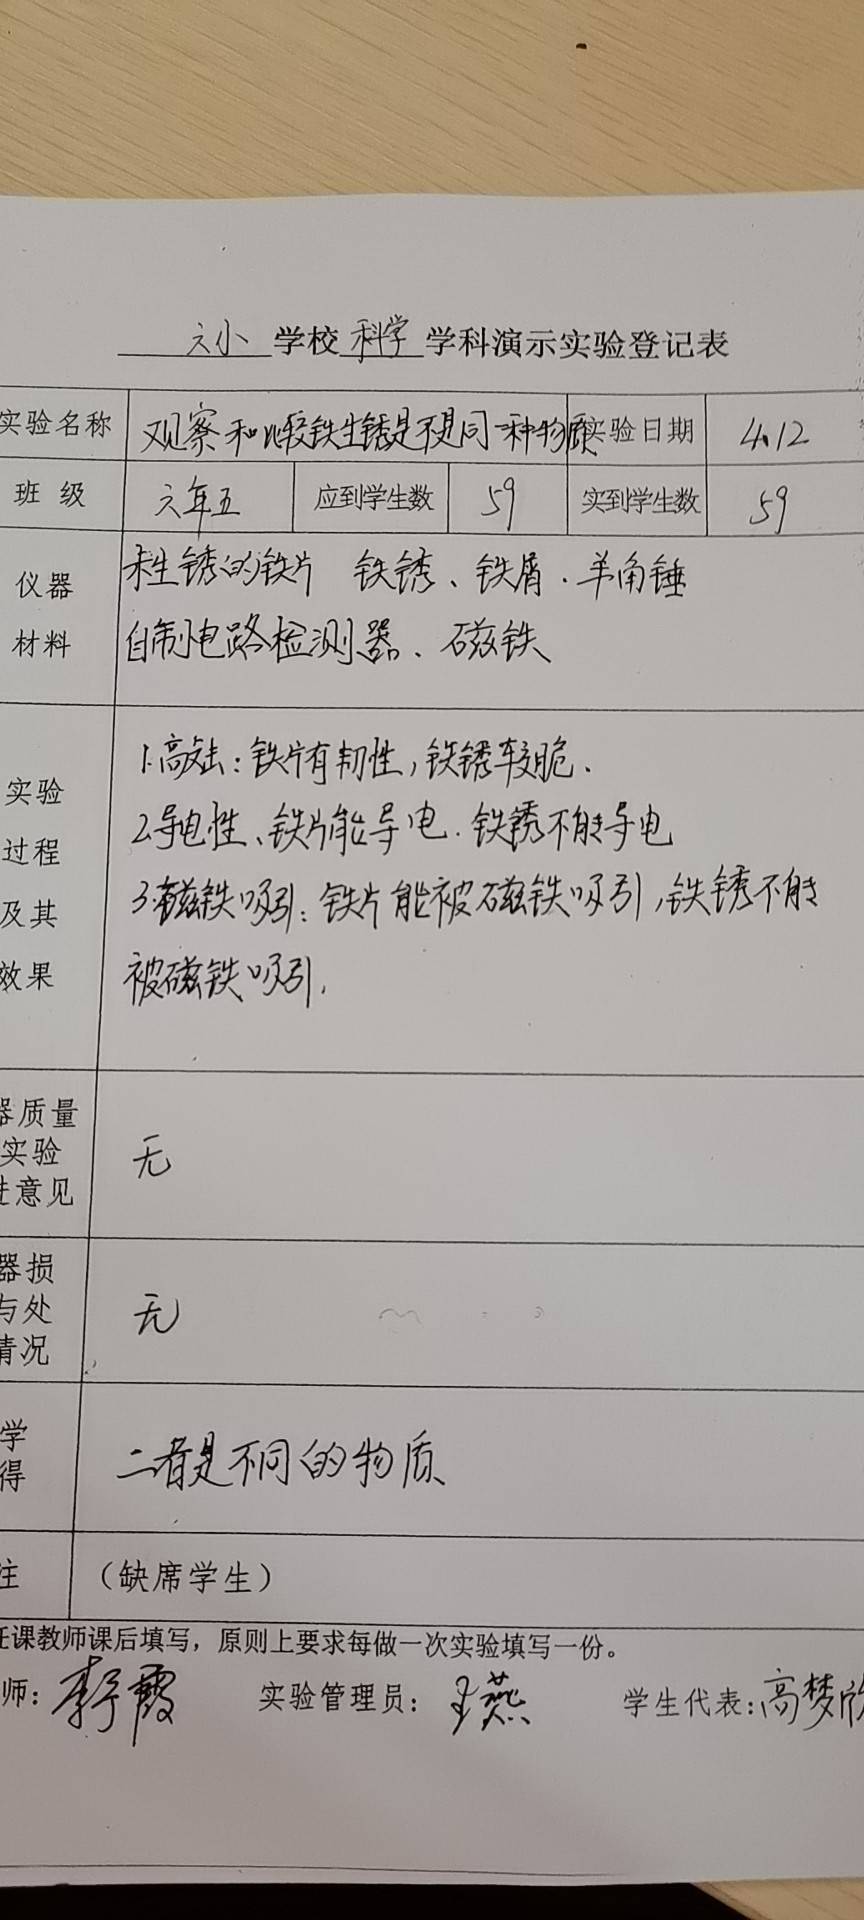 六小 学校 科学 学科演示实验登记表
实验名称 观察和比较铁生锈是不是同一种物质 实验日期 4.12
班 级 六年五 应到学生数 59 实到学生数 59
仪器 未生锈的铁片 铁锈、铁屑.羊角锤
材料 自制电路检测器、磁铁
1.高击:铁片有韧性,铁锈较脆.
实验
2.导电性、铁片能导电.铁锈不能导电
过程
3.磁铁吸引:铁片能被磁铁吸引,铁锈不能
及其
被磁铁吸引.
效果
器质量
实验 无
进意见
器损
与处 无
情况
学 二者是不同的物质
得
注 （缺席学生）
任课教师课后填写，原则上要求每做一次实验填写一份。
师: 霞 实验管理员: 王燕 学生代表:高梦欣